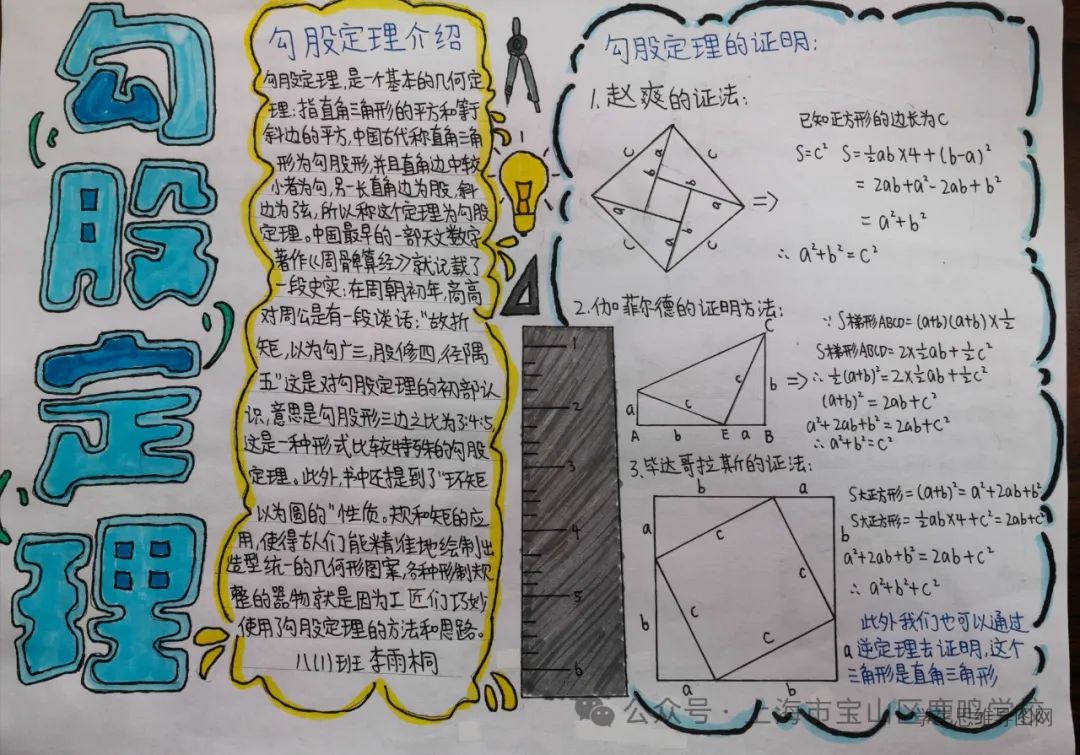 勾股定理
勾股定理介绍
勾股定理,是一个基本的几何定
理:指直角三角形的平方和等于
斜边的平方,中国古代称直角三角
形为勾股形,并且直角边中较
小者为勾,另一长直角边为股,斜
边为弦,所以称这个定理为勾股
定理。中国最早的一部天文数字
著作《周髀算经》就记载了
一段史实:在周朝初年,商高
对周公是有一段谈话:"故折
矩,以为勾广三,股修四,径隅
五"这是对勾股定理的初部认
识,意思是勾股形三边之比为3:4:5,
这是一种形式比较特殊的勾股
定理。此外,书中还提到了"环矩
以为圆的"性质。规和矩的应
用,使得古人们能精准地绘制出
造型统一的几何形图案,各种形制规
整的器物就是因为工匠们巧妙
使用了勾股定理的方法和思路。
八(1)班 李雨桐
1
2
3
4
5
6
勾股定理的证明:
1.赵爽的证法:
c
c
a
b
b
a
a
b
c
c
=>
已知正方形的边长为c
S=c² S=½ab×4+(b-a)²
=2ab+a²-2ab+b²
=a²+b²
∴ a²+b²=c²
2.伽菲尔德的证明方法:
C
c
b
a
c
A
b
E
a
B
=>
∵ S梯形ABCD=(a+b)(a+b)×½
S梯形ABCD=2×½ab+½c²
∴½(a+b)²=2×½ab+½c²
(a+b)²=2ab+c²
a²+2ab+b²=2ab+c²
∴a²+b²=c²
3.毕达哥拉斯的证法:
b
a
a
c
b
c
c
b
c
a
a
b
S大正方形=(a+b)²=a²+2ab+b²
S大正方形=½ab×4+c²=2ab+c²
a²+2ab+b²=2ab+c²
∴ a²+b²+c²
此外我们也可以通过
逆定理去证明,这个
三角形是直角三角形
公众号·上海市宝山区鹿鸣学校
思维导图网